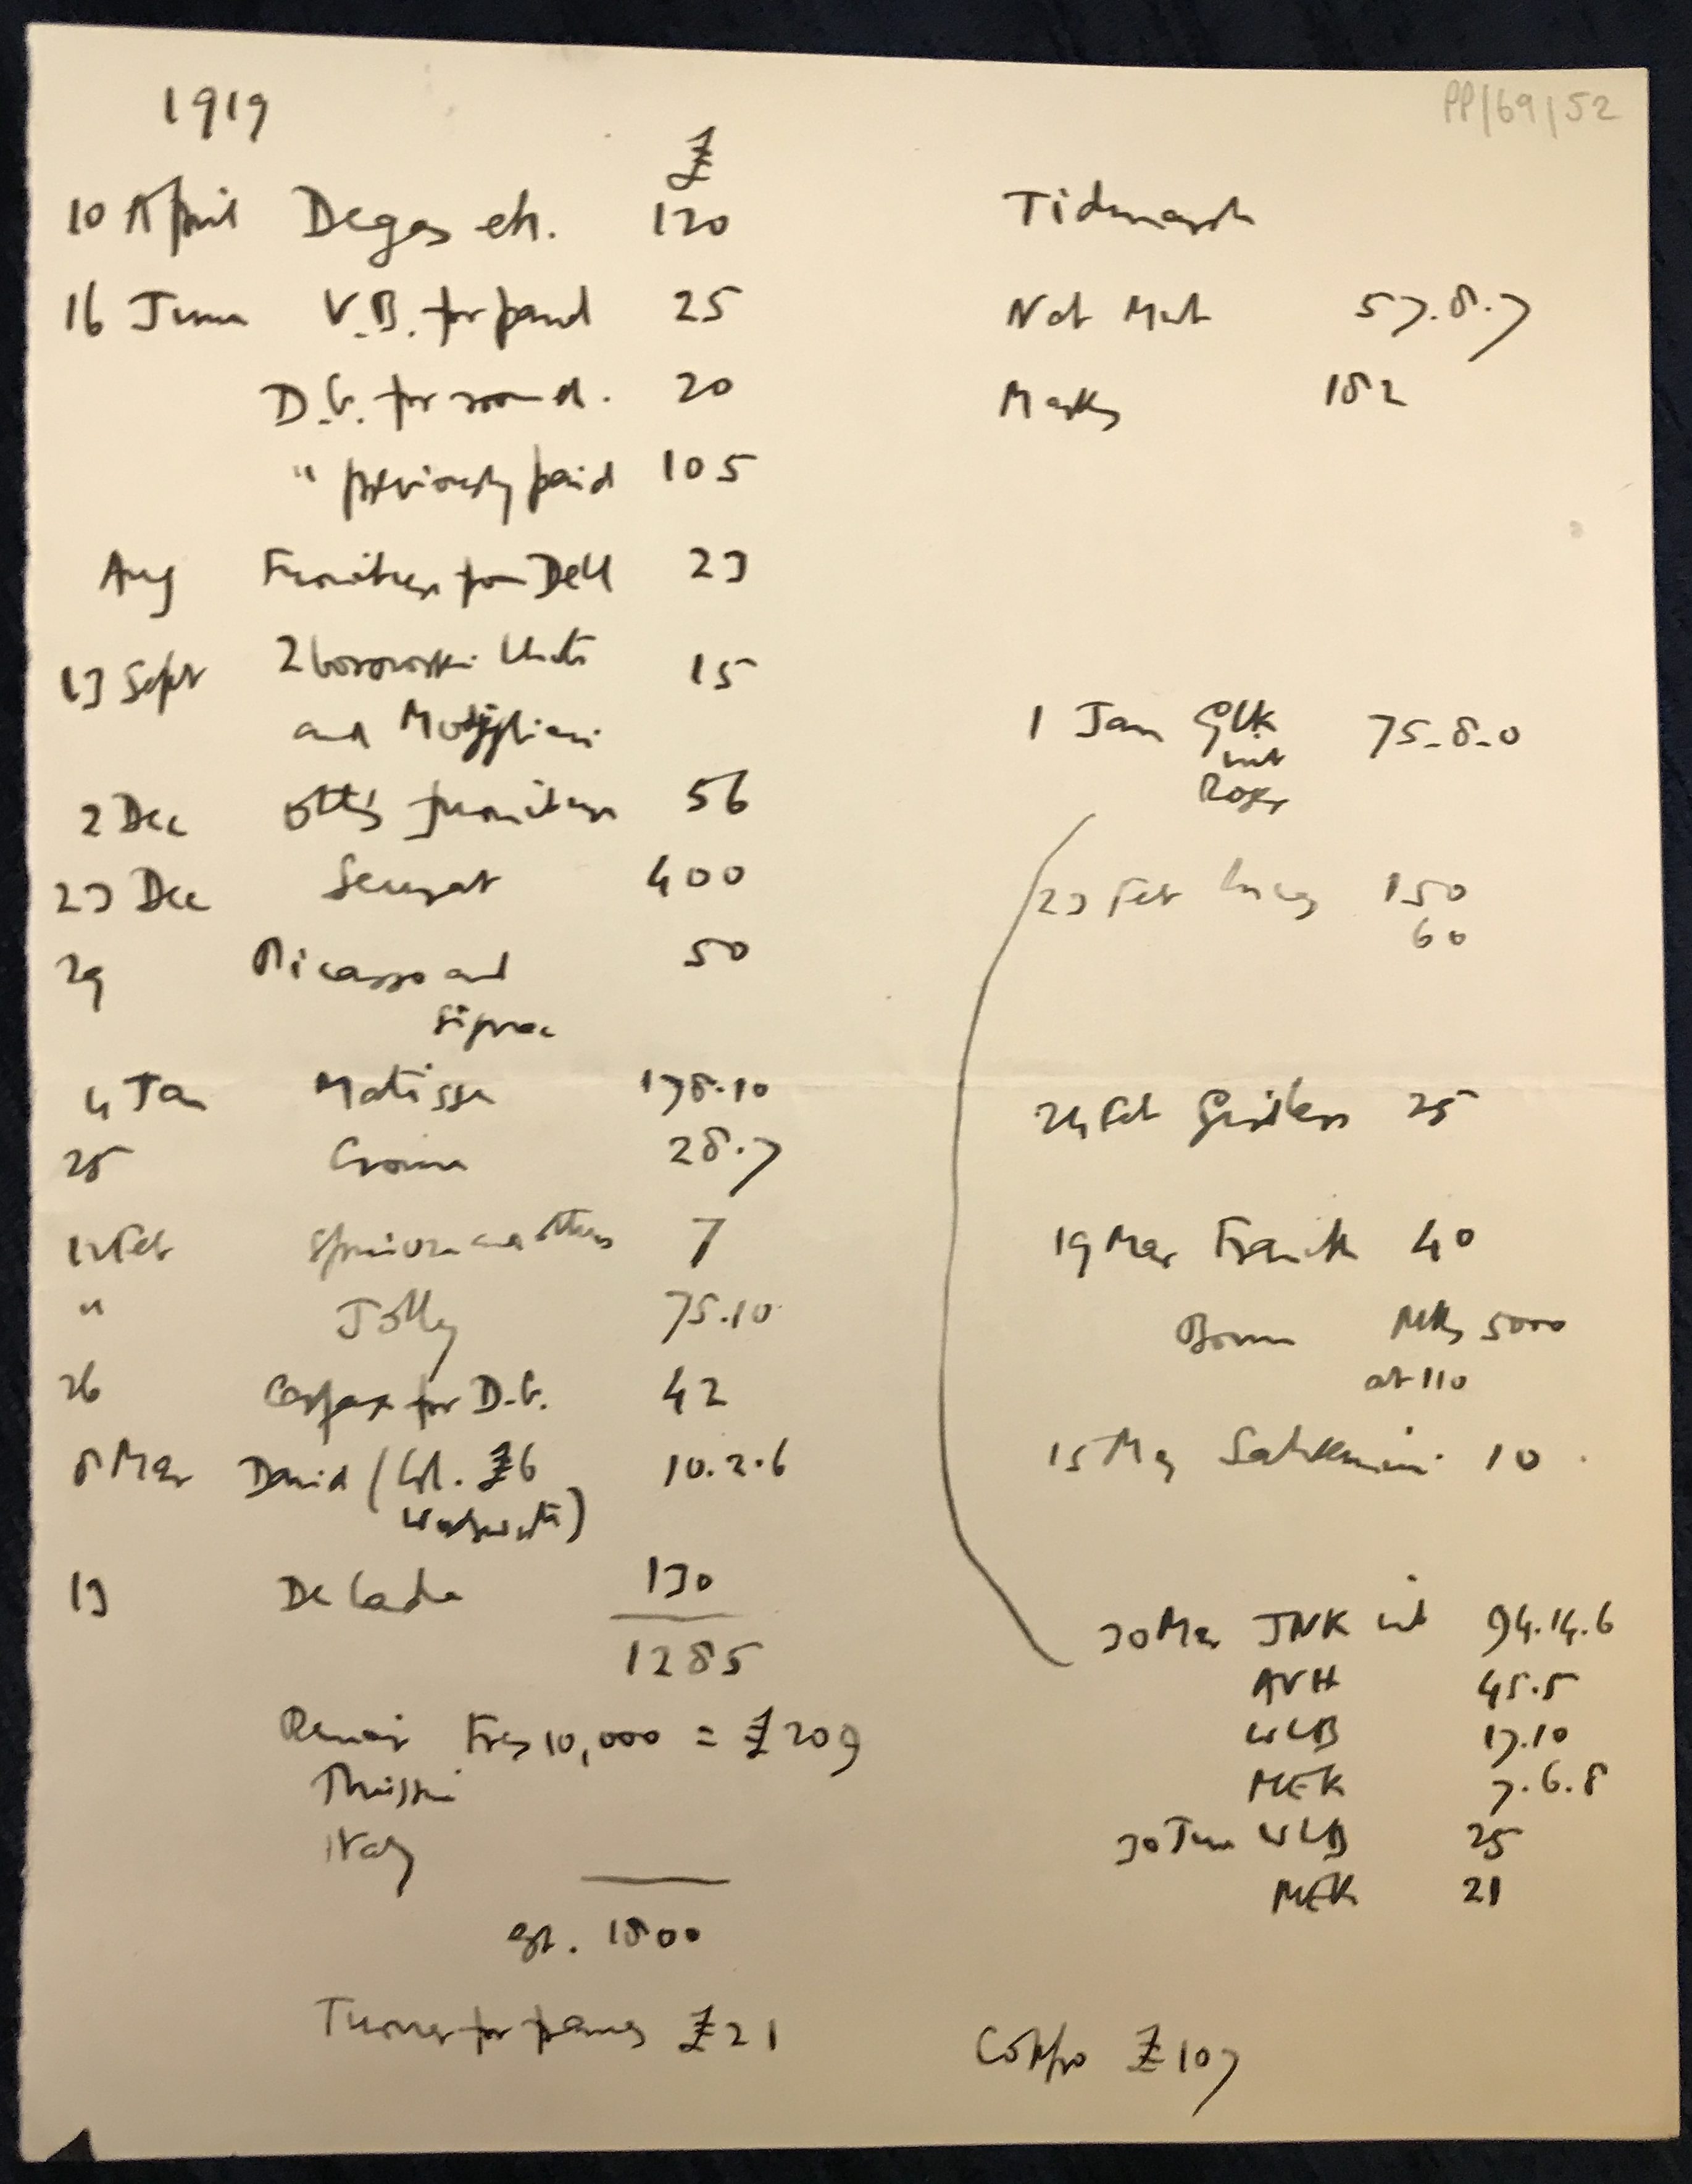 1919
PP/69/52
£
10 April Degas etc. 120
Tidmarsh
16 June V.B. for panel 25
Nat Mut 57.8.7
D.G. for round. 20
Marks 182
" previously paid 105
Aug Furniture from Dell 23
13 Sept Zborowski 15
and Modigliani
1 Jan GLK 75-8-0
int
Roger
2 Dec Otto's furniture 56
23 Dec Seurat 400
23 Feb 150
60
29 Picasso and 50
Signac
4 Jan Matisse 178.10
24 Feb 25
25 28.7
12 Feb and others 7
19 Mar Frank 40
" Jolly 75.10
Mks 5000
at 110
26 Carfax for D.G. 42
15 May 10
8 Mar David (£6 10.2.6
Wadsworth)
13 130
1285
30 Mar JNK int 94.14.6
AVH 45.5
WLB 17.10
Renoir Frcs 10,000 = £209
MEK 7.6.8
Italy
30 June WLB 25
MEK 21
1800
Turner for frames £21
£107